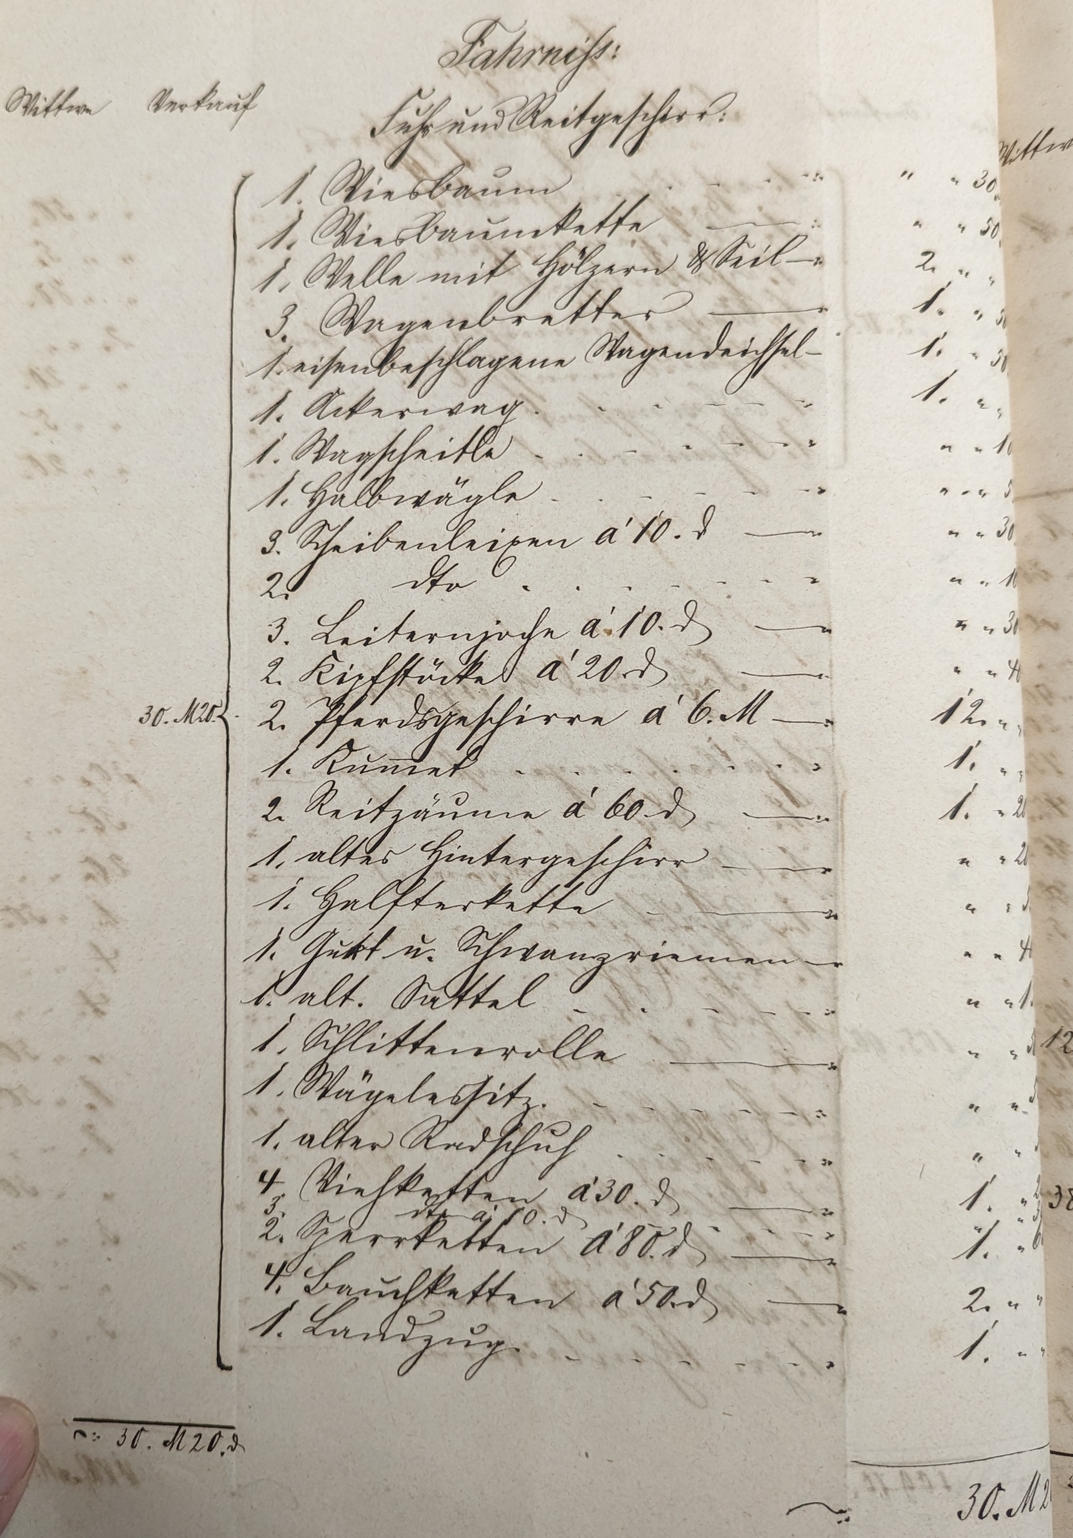 Fahrniß:
Wittwe Verkauf
Fuhr und Reitgeschirr:
1. Wiesbaum " " 30.
1. Wiesbaumkette " " 50.
1. Welle mit Hölzern & Seil 2. " "
3. Wagenbretter 1. "
1. eisenbeschlagene Wagendeichsel 1. "
1. Ackerwag 1. " "
1. Wagscheitle " " 10
1. Halbwägle " "
3. Scheibenleixen á 10. d " " 30
2. dto " " 10
3. Leiternjoche á 10. d " " 30
2. Kipfstöcke á 20. d " " 4
30. M 20. 2. Pferdsgeschirre á 6. M 12. "
1. Kummet 1. "
2. Reitzäume á 60. d 1. " 20
1. altes Hintergeschirr " " 20
1. Halfterkette " "
1. Gurt u. Schwanzriemen " " 4
1. alt. Sattel " " 1.
1. Schlittenrolle " "
1. Wägelessitz. " "
1. alter Radschuh " "
4. Viehketten á 30. d 1. "
3. dto á 10. d
2. Sperrketten á 80. d 1. "
4. Bauchketten á 50. d 2. " "
1. Landzug. 1. "
30. M 20. d
30. M 2